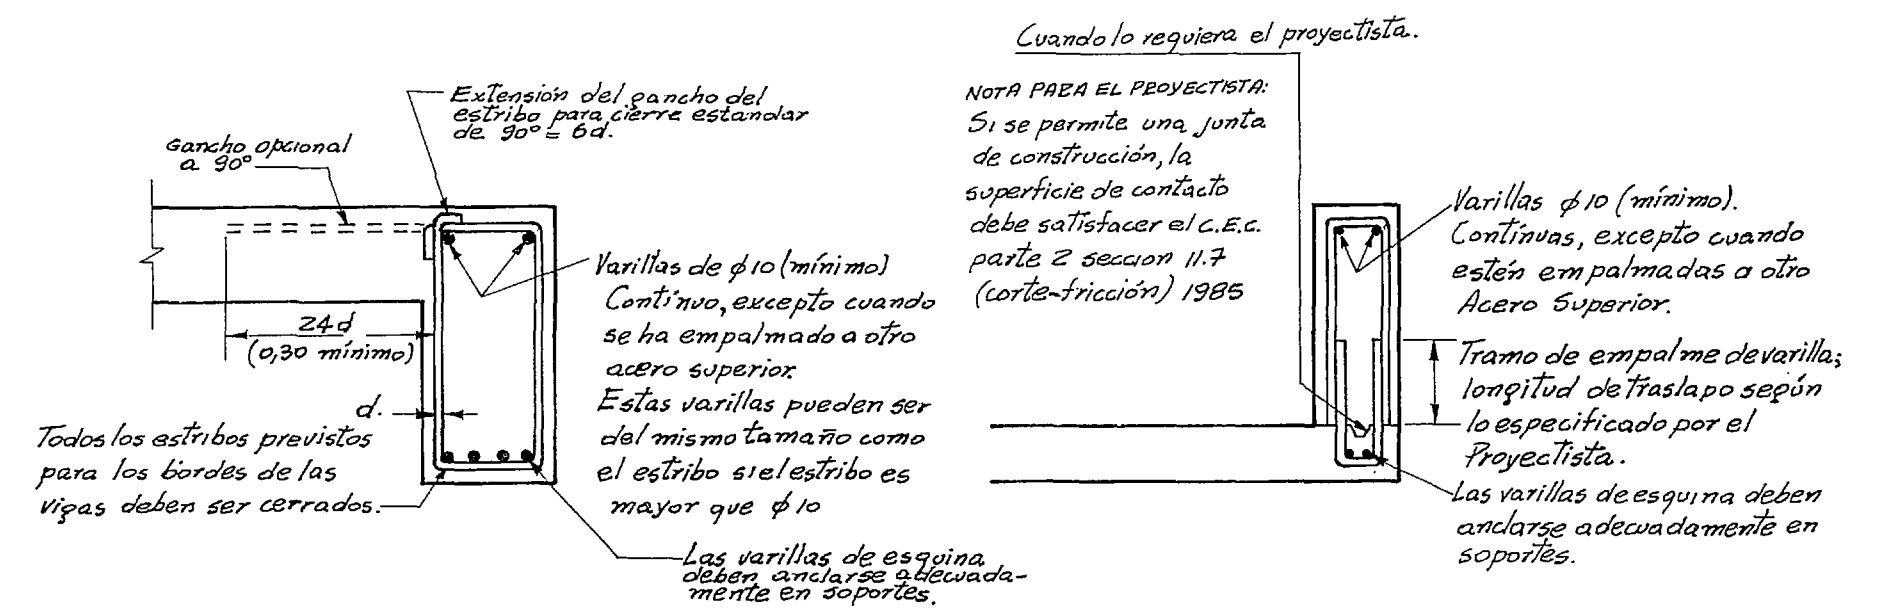 Extensión del gancho del
estribo para cierre estandar
de 90° = 6d.
Gancho opcional
a 90°
24d
(0,30 mínimo)
d.
Todos los estribos previstos
para los bordes de las
vigas deben ser cerrados.
Varillas de ϕ10 (mínimo)
Contínuo, excepto cuando
se ha empalmado a otro
acero superior.
Estas varillas pueden ser
del mismo tamaño como
el estribo si el estribo es
mayor que ϕ10
Las varillas de esquina
deben anclarse adecuada-
mente en soportes.
Cuando lo requiera el proyectista.
NOTA PARA EL PROYECTISTA:
Si se permite una junta
de construcción, la
superficie de contacto
debe satisfacer el C.E.C.
parte 2 seccion 11.7
(corte-fricción) 1985
Varillas ϕ10 (mínimo).
Contínuas, excepto cuando
estén empalmadas a otro
Acero Superior.
Tramo de empalme de varilla;
longitud de traslapo según
lo especificado por el
Proyectista.
Las varillas de esquina deben
anclarse adecuadamente en
soportes.